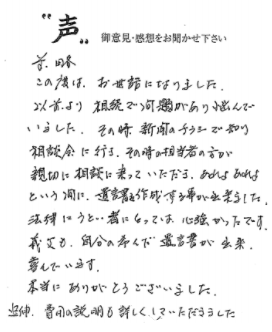 "声" 御意見・感想をお聞かせ下さい
前略
この度は、お世話になりました。
以前より 相続で問題があり悩んで
いました。その時 新聞のチラシで知り
相談会に行き、その時の担当者の方が
親切に相談に乗っていただき、あれよ あれよ
という間に、遺言書を作成する事が出来ました。
法律にうとい者にとっては 心強かったです。
義父も、自分の望んだ遺言書が出来、
喜んでいます。
本当に ありがとうございました。
追伸、費用の説明も詳しくしていただきました